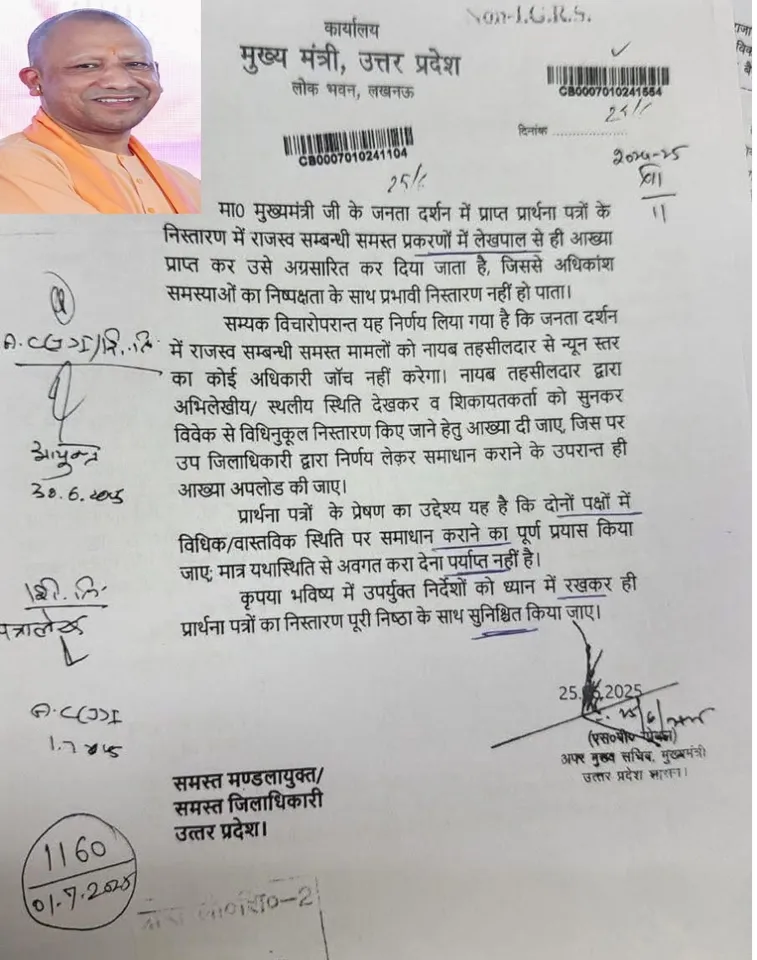 Non-I.G.R.S.
कार्यालय
मुख्य मंत्री, उत्तर प्रदेश
लोक भवन, लखनऊ
CB0007010241554
दिनांक ....................
CB0007010241104
25/6
2024-25
11
मा0 मुख्यमंत्री जी के जनता दर्शन में प्राप्त प्रार्थना पत्रों के
निस्तारण में राजस्व सम्बन्धी समस्त प्रकरणों में लेखपाल से ही आख्या
प्राप्त कर उसे अग्रसारित कर दिया जाता है, जिससे अधिकांश
समस्याओं का निष्पक्षता के साथ प्रभावी निस्तारण नहीं हो पाता।
सम्यक विचारोपरान्त यह निर्णय लिया गया है कि जनता दर्शन
में राजस्व सम्बन्धी समस्त मामलों को नायब तहसीलदार से न्यून स्तर
का कोई अधिकारी जॉच नहीं करेगा। नायब तहसीलदार द्वारा
अभिलेखीय/ स्थलीय स्थिति देखकर व शिकायतकर्ता को सुनकर
विवेक से विधिनुकूल निस्तारण किए जाने हेतु आख्या दी जाए, जिस पर
उप जिलाधिकारी द्वारा निर्णय लेकर समाधान कराने के उपरान्त ही
आख्या अपलोड की जाए।
प्रार्थना पत्रों के प्रेषण का उद्देश्य यह है कि दोनों पक्षों में
विधिक/वास्तविक स्थिति पर समाधान कराने का पूर्ण प्रयास किया
जाए; मात्र यथास्थिति से अवगत करा देना पर्याप्त नहीं है।
कृपया भविष्य में उपर्युक्त निर्देशों को ध्यान में रखकर ही
प्रार्थना पत्रों का निस्तारण पूरी निष्ठा के साथ सुनिश्चित किया जाए।
आयुक्त
30.6.2025
शि. लि.
पत्रालेख
1.7.2025
25. 2025
अपर मुख्य सचिव, मुख्यमंत्री
उत्तर प्रदेश शासन।
समस्त मण्डलायुक्त/
समस्त जिलाधिकारी
उत्तर प्रदेश।
1160
01.7.2025